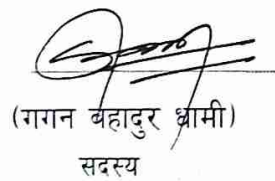 (गगन बहादुर धामी)
सदस्य